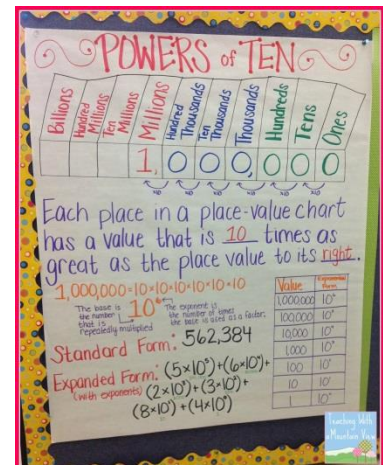 POWERS of TEN
Billions
Hundred Millions
Ten Millions
Millions
Hundred Thousands
Ten Thousands
Thousands
Hundreds
Tens
Ones
1,000,000
Each place in a place-value chart
has a value that is 10 times as
great as the place value to its right.
1,000,000=10×10×10×10×10×10
The base is
the number
that is
repeatedly multiplied
10
The exponent is
the number of times
the base is used as a factor.
Standard Form: 562,384
Expanded Form: (5×10⁵)+(6×10⁴)+
(with exponents) (2×10³)+(3×10²)+
(8×10¹)+(4×10⁰)
Value Exponential Form
1,000,000
100,000
10,000
1,000
100
10
1
Teaching With
a Mountain View